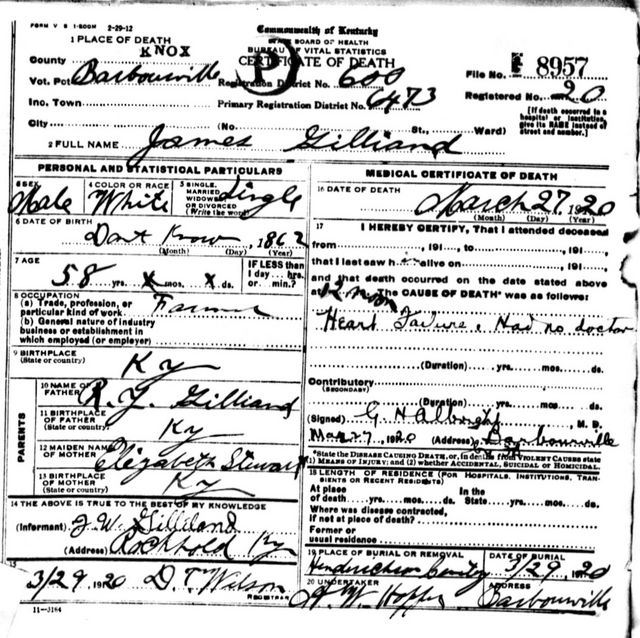 FORM V S 1-500M 2-29-12
Commonwealth of Kentucky
STATE BOARD OF HEALTH
BUREAU OF VITAL STATISTICS
CERTIFICATE OF DEATH
1 PLACE OF DEATH
County KNOX
Vot. Pct Barbourville
Inc. Town
City
Registration District No. 600
Primary Registration District No. 6473
File No. 8957
Registered No. 20
(No. St., Ward)
[If death occurred in a hospital or institution, give its NAME instead of street and number.]
2 FULL NAME James Gilliand
PERSONAL AND STATISTICAL PARTICULARS
3 SEX Male
4 COLOR OR RACE White
5 SINGLE, MARRIED, WIDOWED OR DIVORCED (Write the word) Single
6 DATE OF BIRTH
Dont Know, 1862
(Month) (Day) (Year)
7 AGE
58 yrs. x mos. x ds.
IF LESS than 1 day hrs. or min.?
8 OCCUPATION
(a) Trade, profession, or particular kind of work Farmer
(b) General nature of industry business or establishment in which employed (or employer)
9 BIRTHPLACE
(State or country) Ky
PARENTS
10 NAME OF FATHER Gilliand
11 BIRTHPLACE OF FATHER
(State or country) Ky
12 MAIDEN NAME OF MOTHER Elizabeth Stewart
13 BIRTHPLACE OF MOTHER
(State or country) Ky
14 THE ABOVE IS TRUE TO THE BEST OF MY KNOWLEDGE
(Informant) J.W. Gilliland
(Address) Rockhold Ky
15
3/29 1920 D.T. Wilson
REGISTRAR
11-3184
MEDICAL CERTIFICATE OF DEATH
16 DATE OF DEATH
March 27 1920
(Month) (Day) (Year)
17 I HEREBY CERTIFY, That I attended deceased
from , 191 , to , 191 ,
that I last saw h alive on , 191 ,
and that death occurred on the date stated above
at 12 m. The CAUSE OF DEATH* was as follows:
Heart Failure. Had no doctor
(Duration) yrs. mos. ds.
Contributory
(SECONDARY)
(Duration) yrs. mos. ds.
(Signed) G H Albright, M. D.
Mar 27, 1920 (Address) Barbourville
*State the DISEASE CAUSING DEATH, or, in deaths from VIOLENT CAUSES state
(1) MEANS OF INJURY; and (2) whether ACCIDENTAL, SUICIDAL OR HOMICIDAL.
18 LENGTH OF RESIDENCE (FOR HOSPITALS, INSTITUTIONS, TRANSIENTS OR RECENT RESIDENTS)
At place of death yrs. mos. ds.
In the State yrs. mos. ds.
Where was disease contracted,
if not at place of death?
Former or
usual residence
19 PLACE OF BURIAL OR REMOVAL
DATE OF BURIAL
3/29, 1920
20 UNDERTAKER
ADDRESS
Barbourville